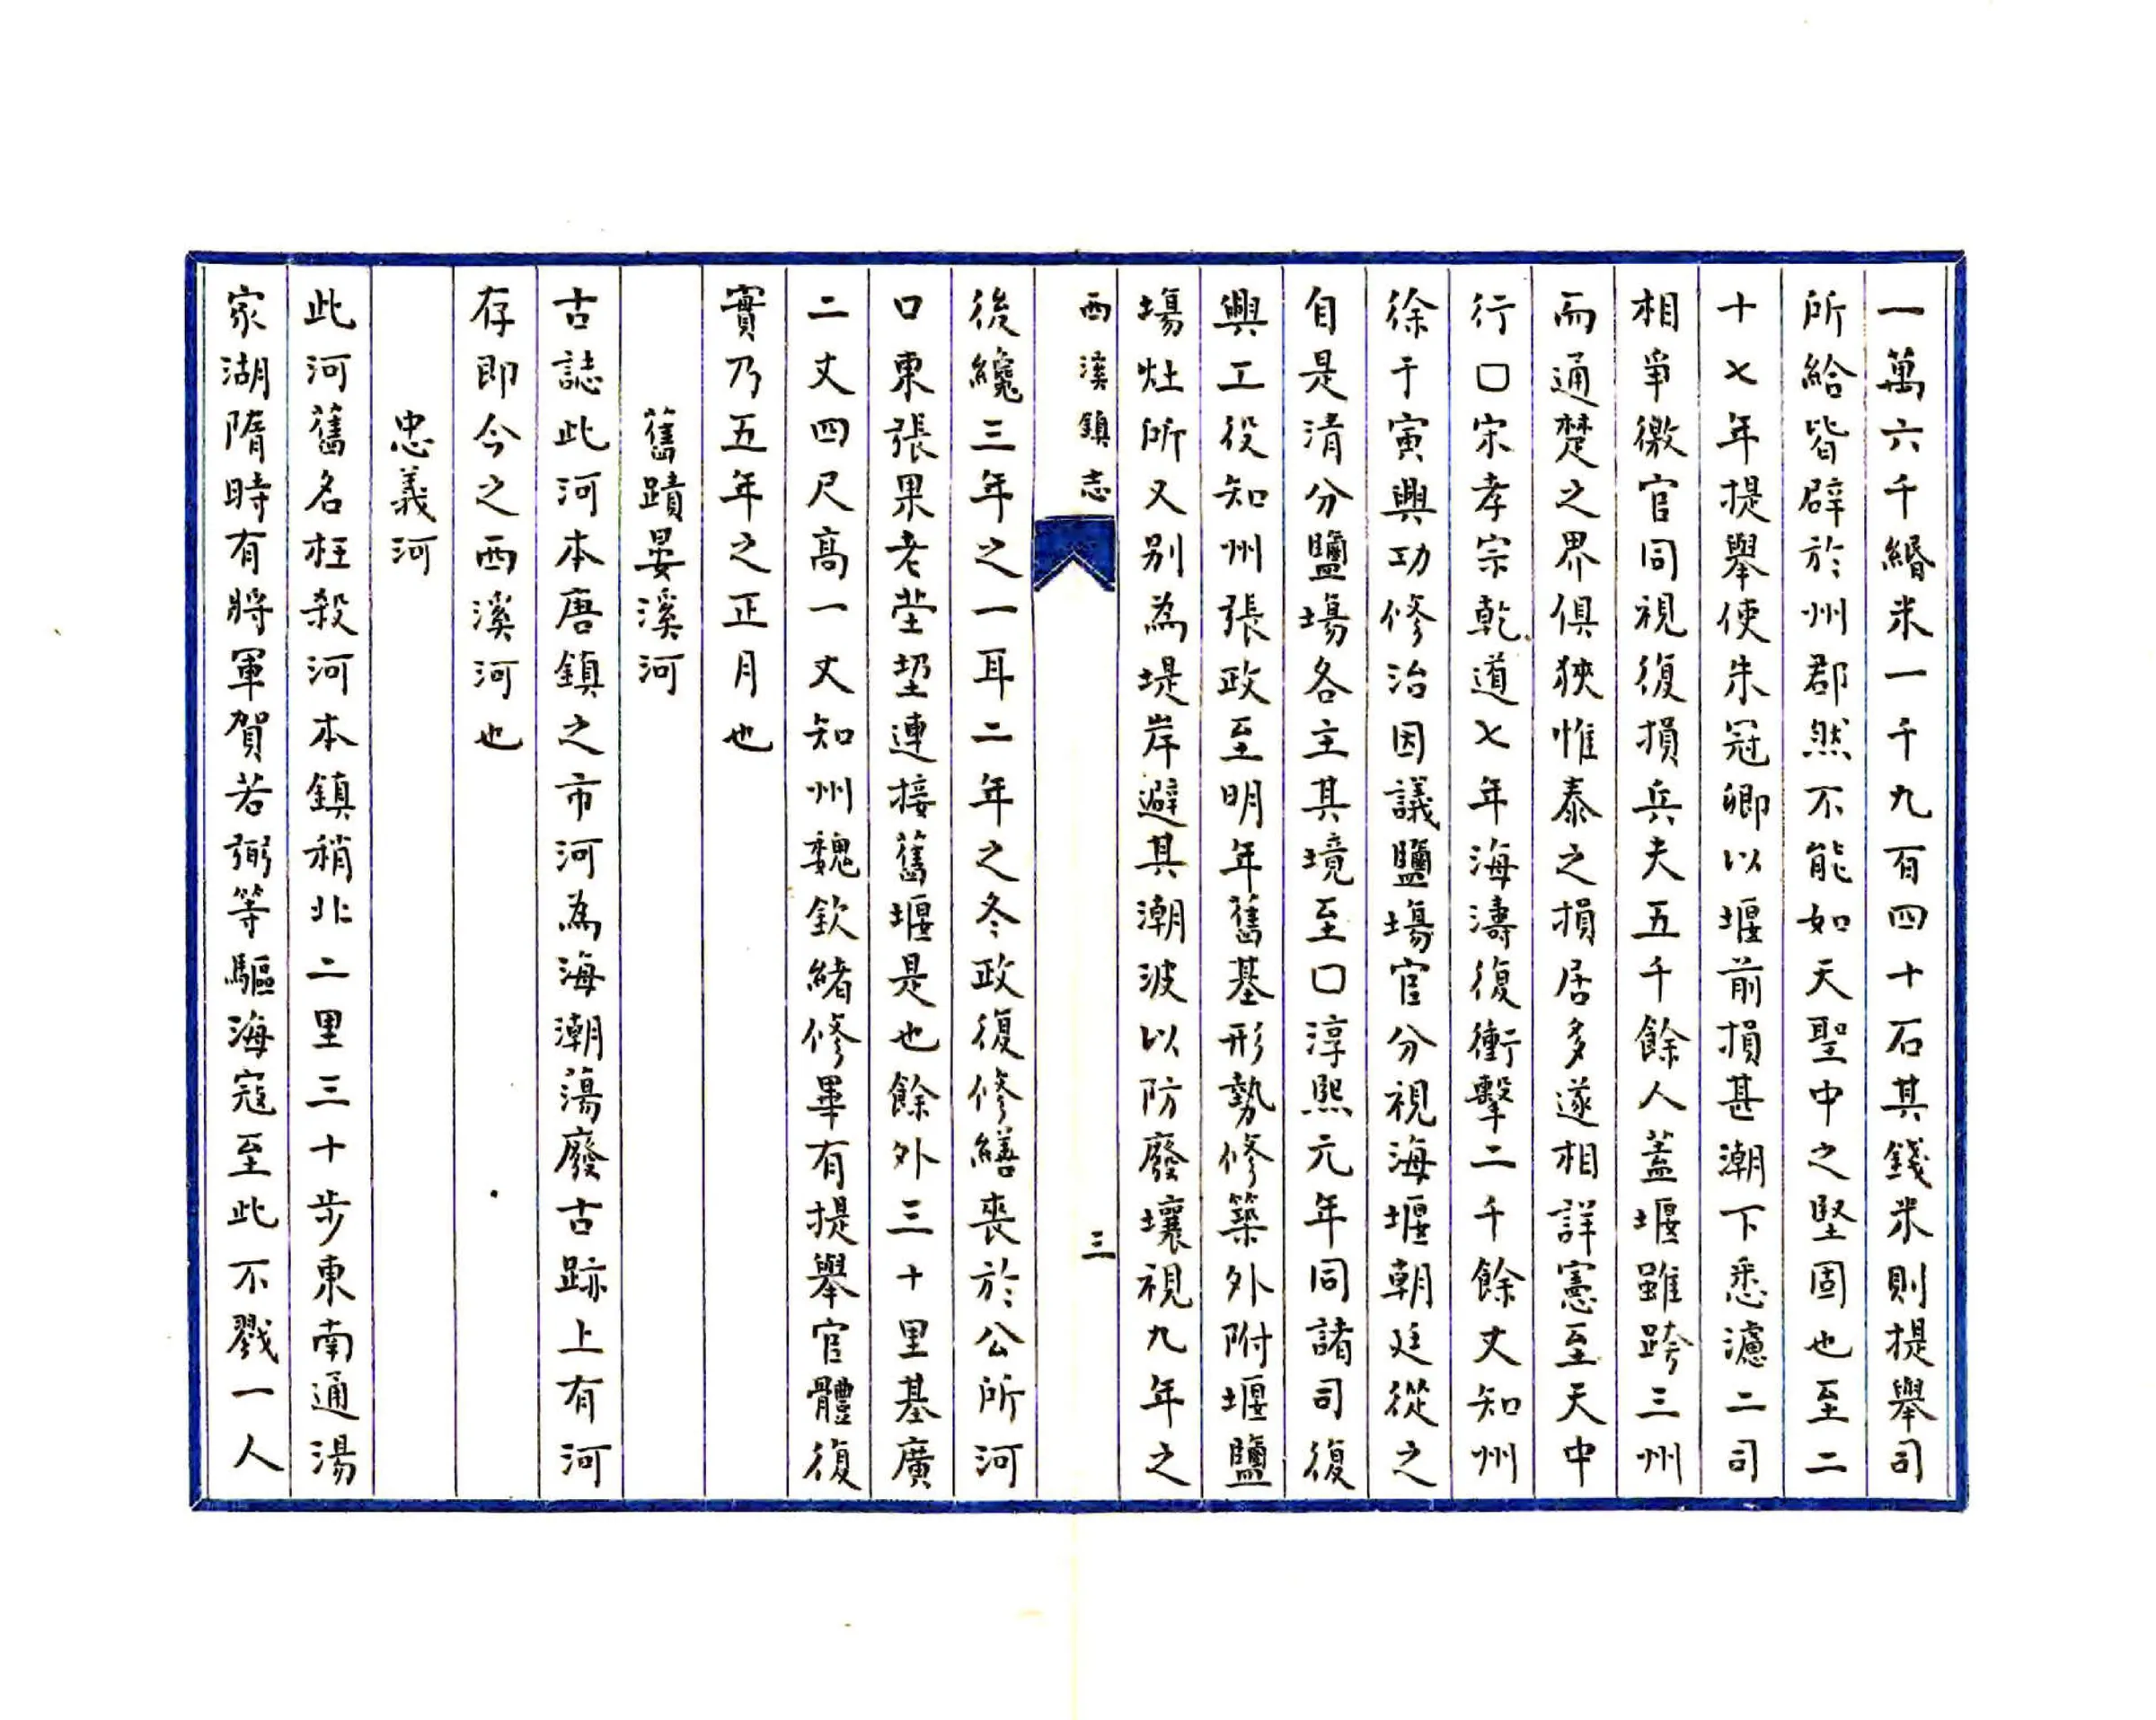 一萬六千緡米一千九百四十石其錢米則提舉司
所給皆辟於州郡然不能如天聖中之堅固也至二
十七年提舉使朱冠卿以堰前損甚潮下悉濾二司
相爭繳官同視復損兵夫五千餘人蓋堰雖跨三州
而通楚之界俱狹惟泰之損居多遂相詳憲至天中
行口宋孝宗乾道七年海濤復衝擊二千餘丈知州
徐于寅興功修治因議鹽場官分視海堰朝廷從之
自是清分鹽場各主其境至口淳熙元年同諸司復
興工役知州張政至明年舊基形勢修築外附堰鹽
場灶所又别為堤岸避其潮波以防廢壤視九年之
西溪鎮志
三
後纔三年之一耳二年之冬政復修繕喪於公所河
口東張果老塋㘿連接舊堰是也餘外三十里基廣
二丈四尺高一丈知州魏欽緒修畢有提舉官體復
實乃五年之正月也
舊蹟晏溪河
古誌此河本唐鎮之市河為海潮蕩廢古跡上有河
存即今之西溪河也
忠義河
此河舊名枉殺河本鎮稍北二里三十步東南通湯
家湖隋時有將軍賀若弼等驅海寇至此不戮一人